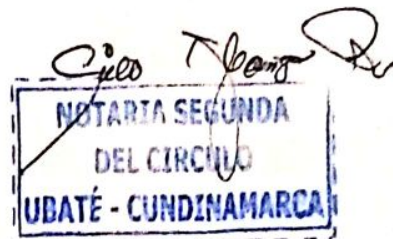 NOTARIA SEGUNDA
DEL CIRCULO
UBATÉ - CUNDINAMARCA